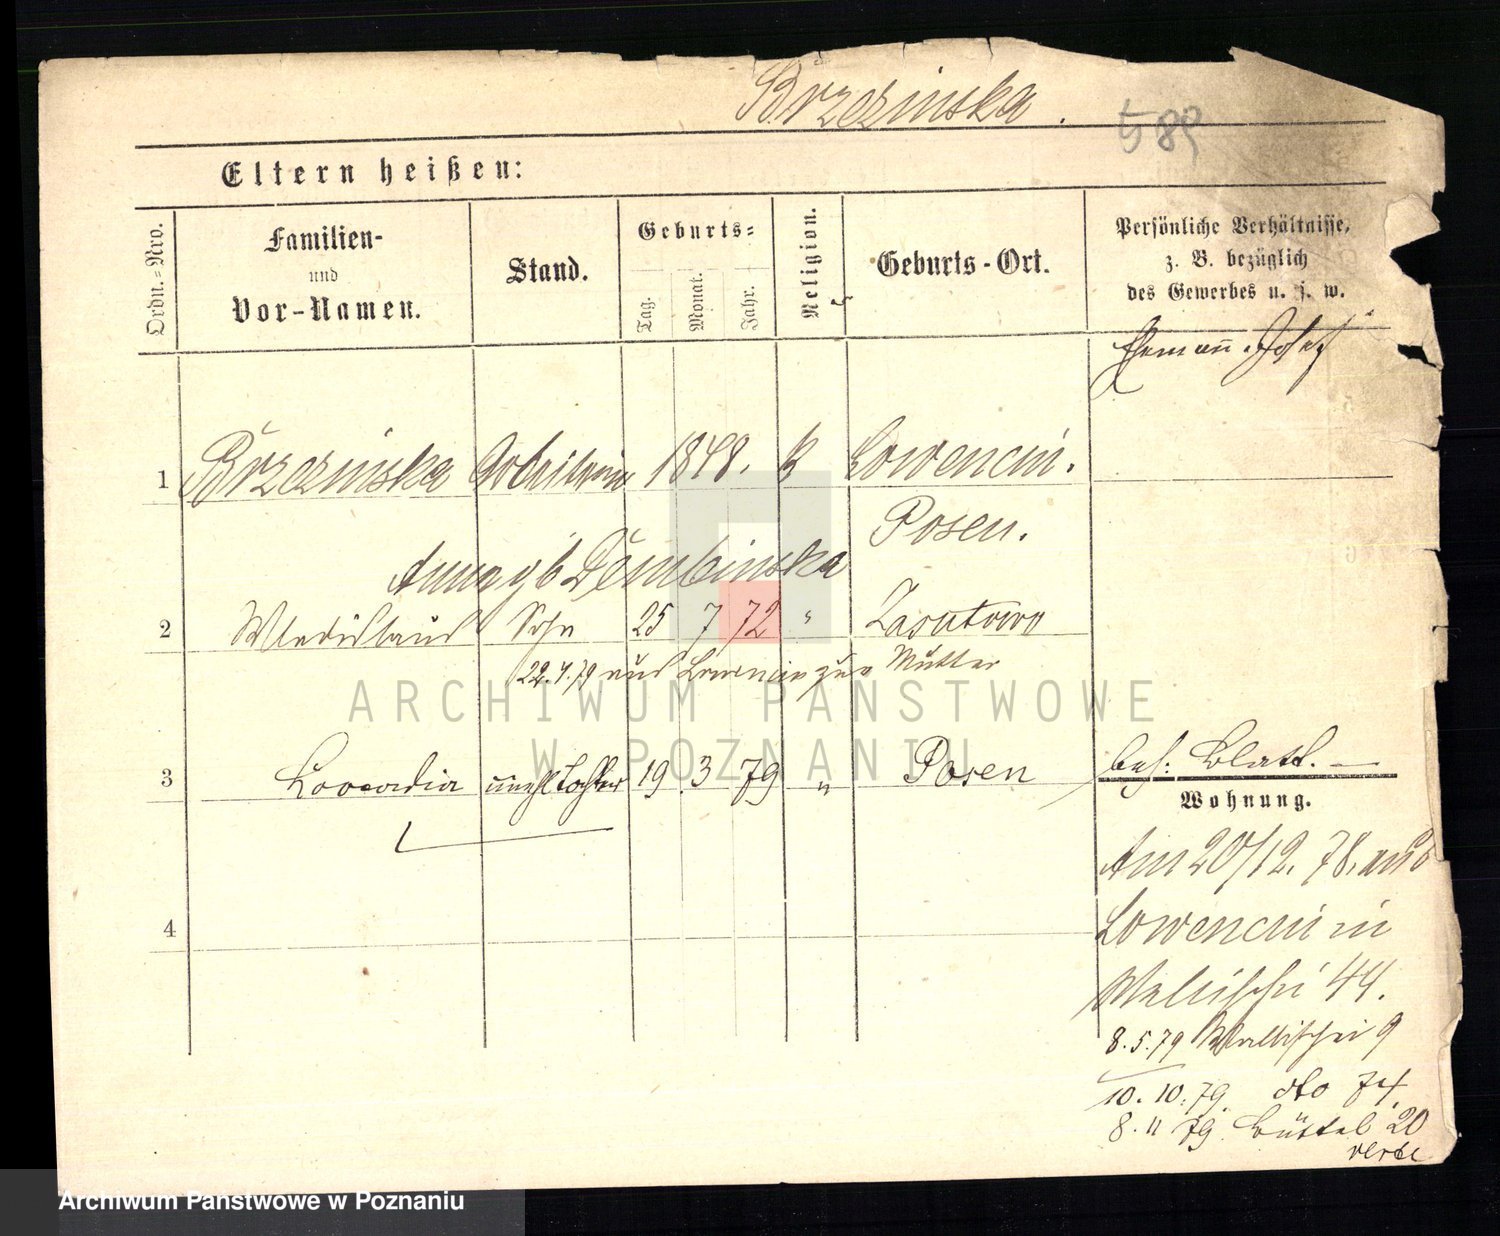 Brzezinska.
589
Eltern heißen:
Ordn.=Nro.
Familien-
und
Vor-Namen.
Stand.
Geburts=
Tag.
Monat.
Jahr.
Religion.
Geburts-Ort.
Persönliche Verhältnisse,
z. B. bezüglich
des Gewerbes u. s. w.
Ehemann Josef
1 Brzezinska Arbeiterin 1848. k Lowencin.
Posen.
Anna gb Dembinska
2 Wladislaus Sohn 25 7 72 " Zasutowo
22.4.79 aus Lowencin zur Mutter
3 Leocadia unehl Tochter 19 3 79 " Posen
bes: Blatt.
Wohnung.
4
Am 20/12. 78. aus
Lowencin in
Wallischei 44.
8.5.79 Wallischei 9
10.10.79. dto 74.
8.11 79. Büttel 20
ARCHIWUM PAŃSTWOWE
W POZNANIU
Archiwum Państwowe w Poznaniu